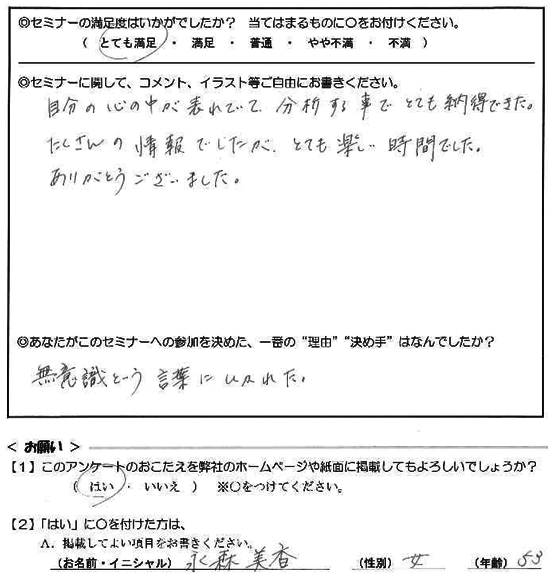 ◎セミナーの満足度はいかがでしたか？ 当てはまるものに○をお付けください。
（ とても満足 ・ 満足 ・ 普通 ・ やや不満 ・ 不満 ）
◎セミナーに関して、コメント、イラスト等ご自由にお書きください。
自分の心の中が表れていて、分析する事でとても納得できた。
たくさんの情報でしたが、とても楽しい時間でした。
ありがとうございました。
◎あなたがこのセミナーへの参加を決めた、一番の“理由”“決め手”はなんでしたか？
無意識という言葉にひかれた。
＜ お願い ＞
【1】このアンケートのおこたえを弊社のホームページや紙面に掲載してもよろしいでしょうか？
（ はい ・ いいえ ） ※○をつけてください。
【2】「はい」に○を付けた方は、
A．掲載してよい項目をお書きください。
（お名前・イニシャル） 永森 美香 （性別） 女 （年齢） 53